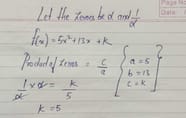 Page No
Date
Let the zeroes be α and 1/α
f(x) = 5x² + 13x + k
Product of zeroes = c/a { a = 5
b = 13
c = k }
1/α × α = k/5
k = 5